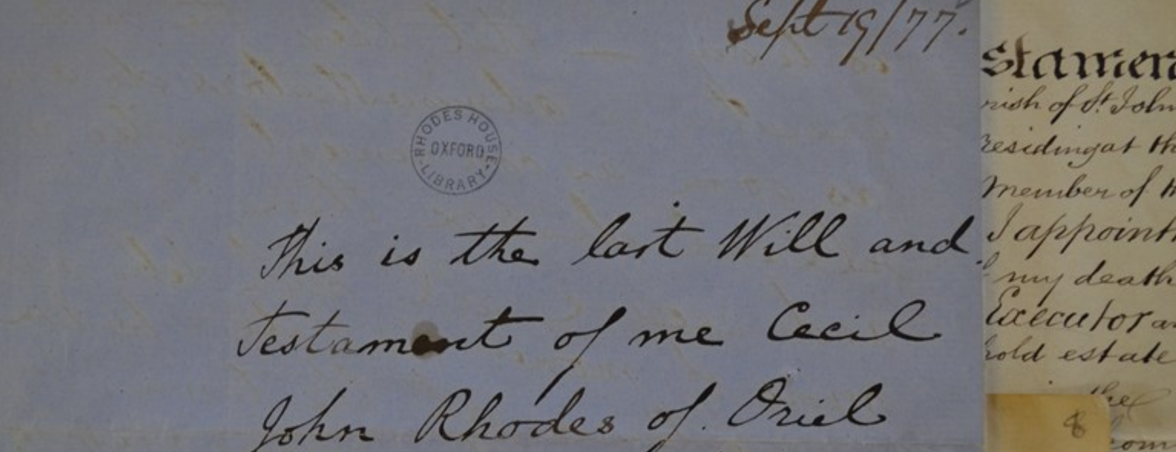 Sept 19/77.
RHODES HOUSE
OXFORD
LIBRARY
This is the last Will and
testament of me Cecil
John Rhodes of Oriel
stamen
rish of St. John
residing at th
Member of th
I appoint
my death
Executor a
hold estate
the
8
com